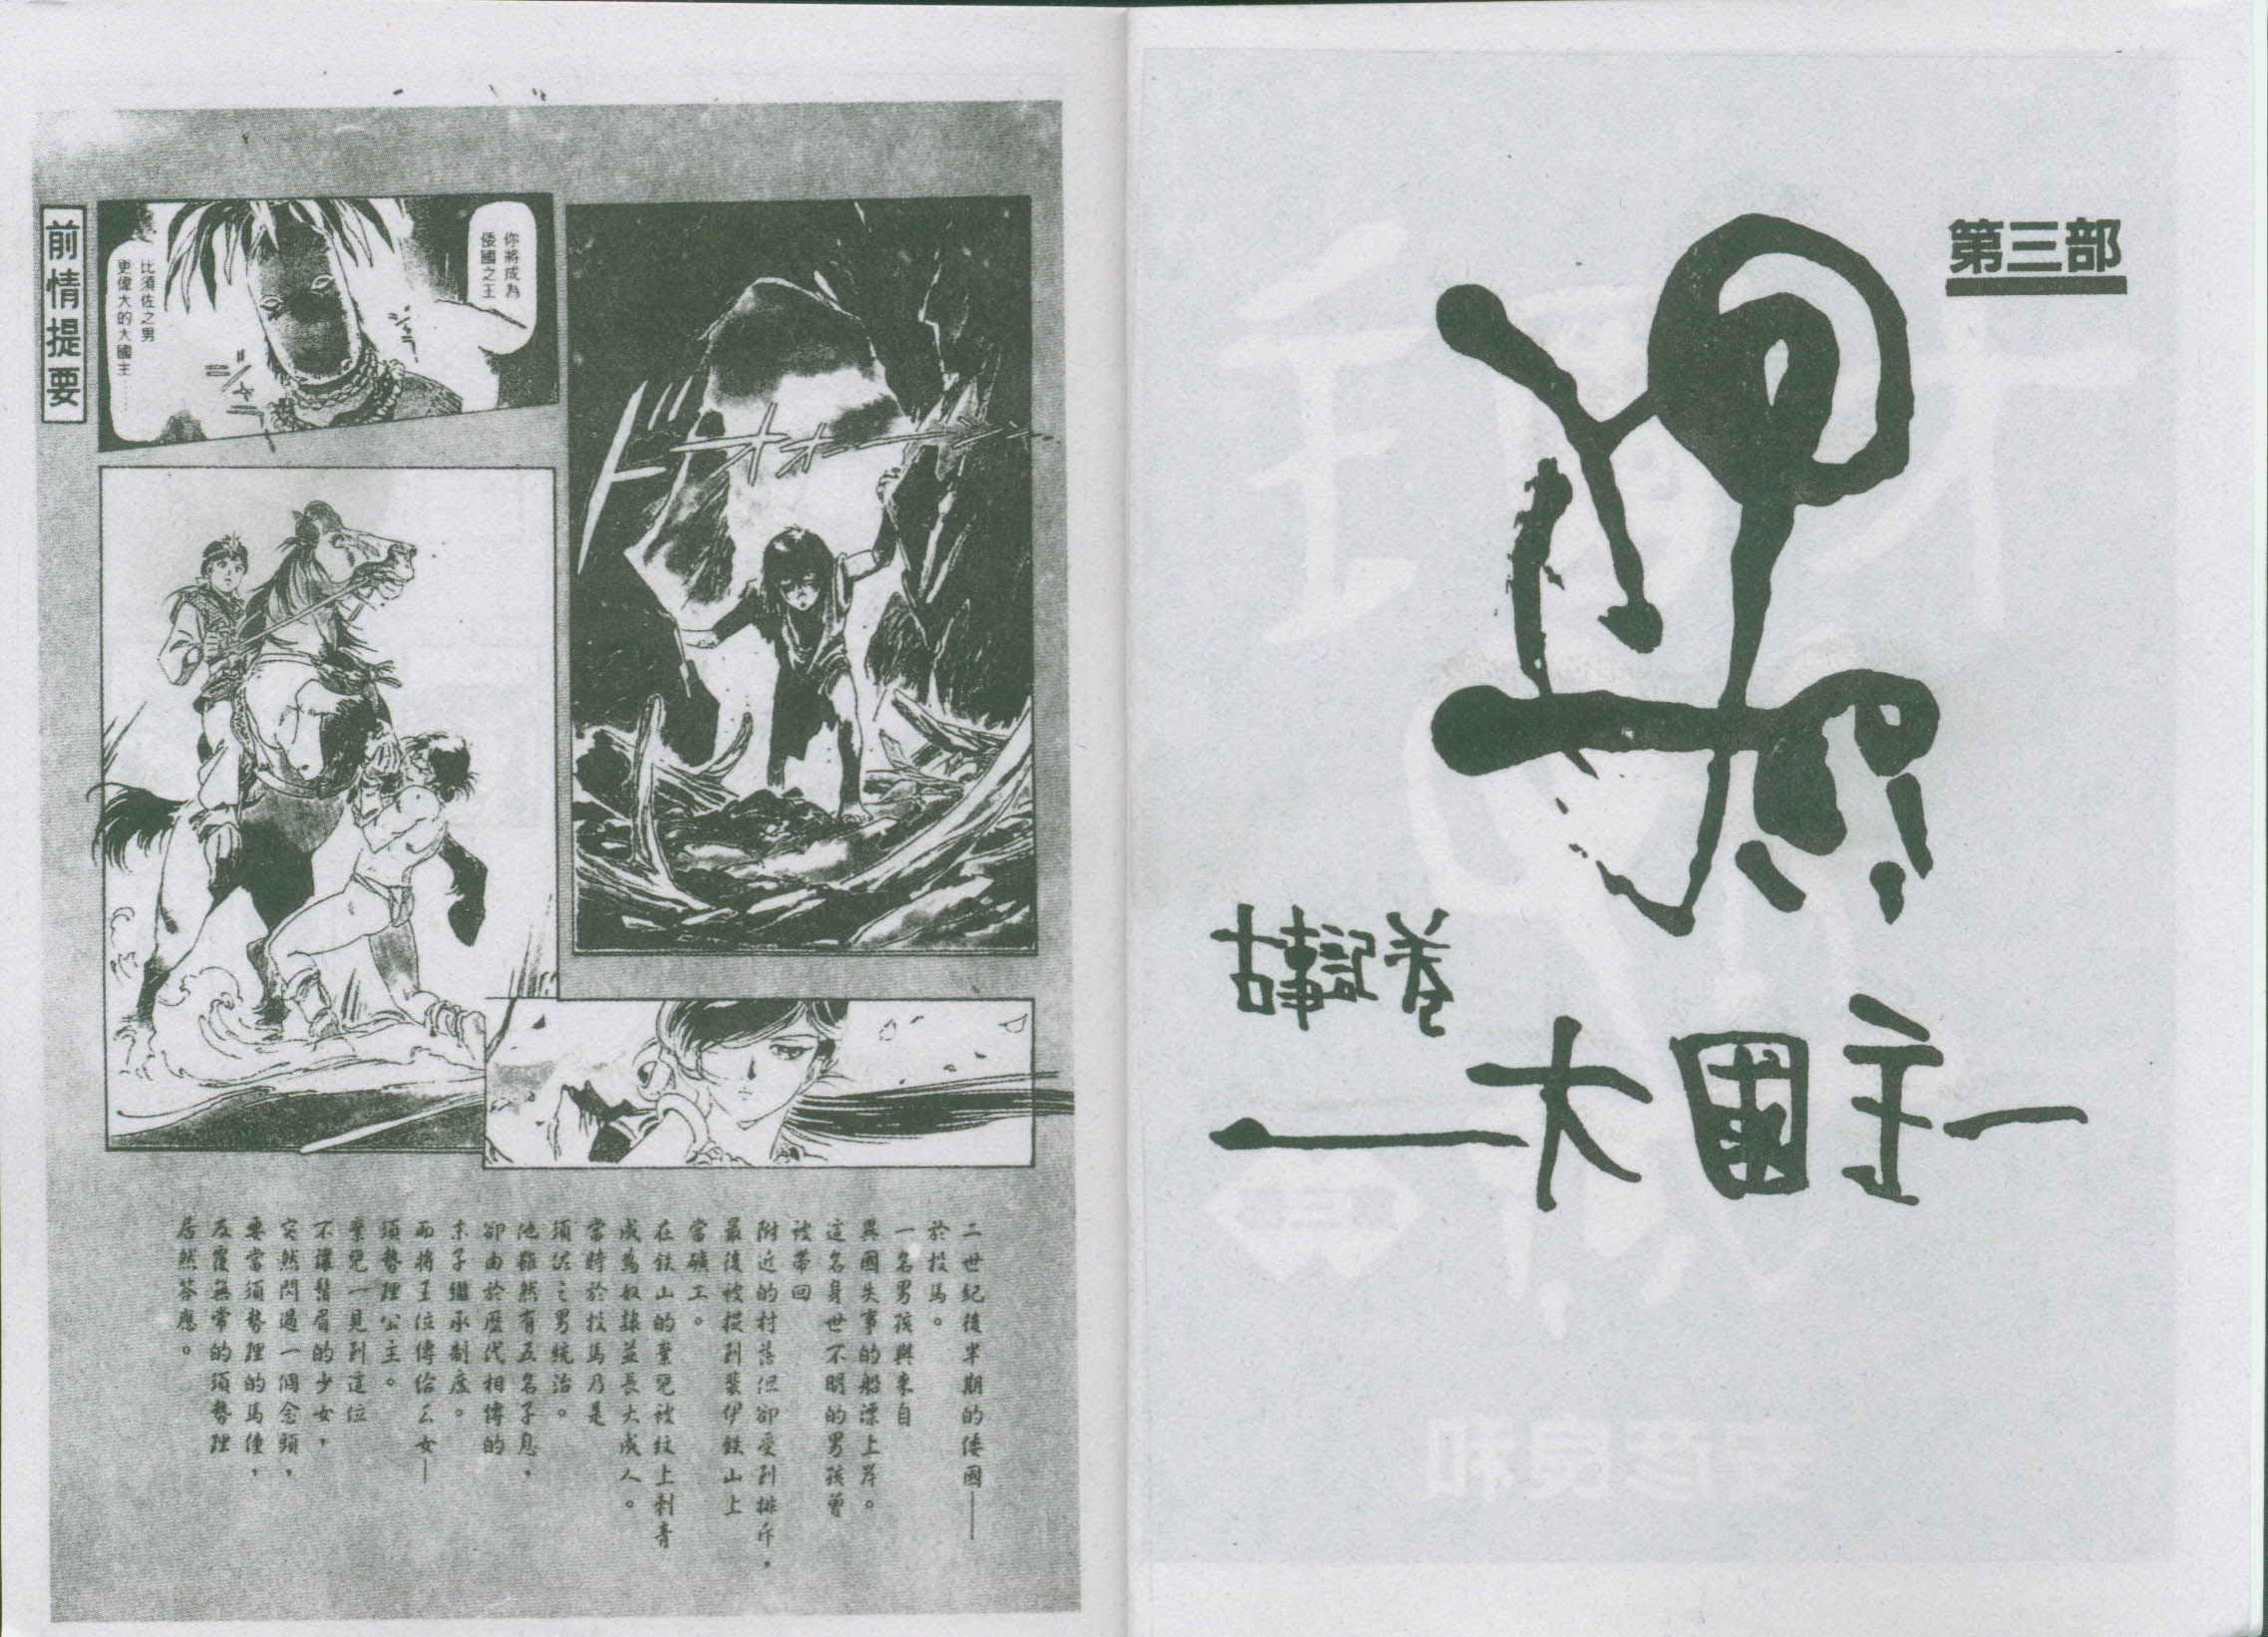 第三部
古事記巻
大國主
前情提要
你將成為
倭國之王
比須佐之男
更偉大的大國主……
ドオオォーン
二世紀後半期的倭國——
於投馬。
一名男孩與來自
異國失事的船漂上岸。
這名身世不明的男孩曾
被帶回
附近的村落但卻受到排斥，
最後被捉到裴伊鉄山上
當礦工。
在鉄山的棄兒被紋上刺青
成為奴隸並長大成人。
當時於投馬乃是
須佐之男統治。
他雖然有五名子息，
卻由於歷代相傳的
末子繼承制度。
而將王位傳給么女—
須勢理公主。
棄兒一見到這位
不讓鬚眉的少女，
突然閃過一個念頭，
要當須勢理的馬僮，
反覆無常的須勢理
居然答應。